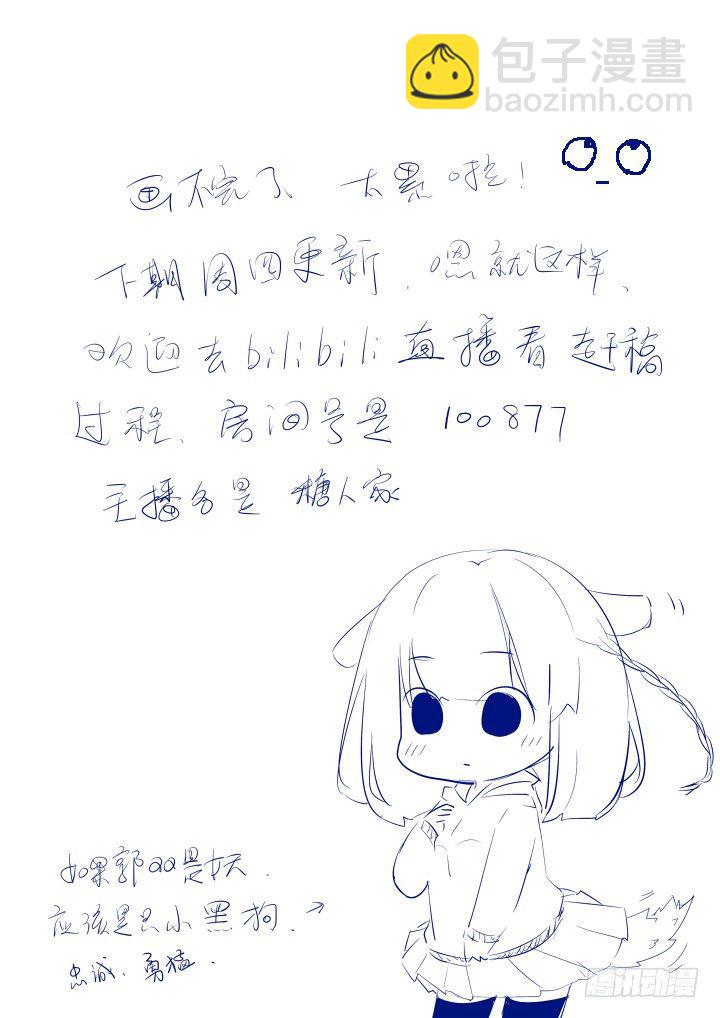 包子漫畫
baozimh.com
画不完了、太累啦!
下期周四更新.嗯就这样、
欢迎去bilibili直播看赶稿
过程、房间号是 100877
主播名是 糖人家
如果郭QQ是妖.
应该是只小黑狗.
忠诚.勇猛.
腾讯动漫